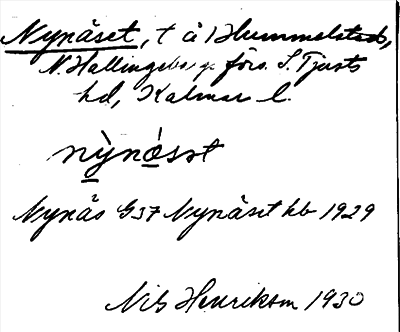 Nynäset, t å Hummelstad,
N. Hallingeberg förs. S. Tjusts
hd, Kalmar l.
nỳnǫ́sət
Nynäs G37 Nynäset hb 1929
Nils Henrikson 1930